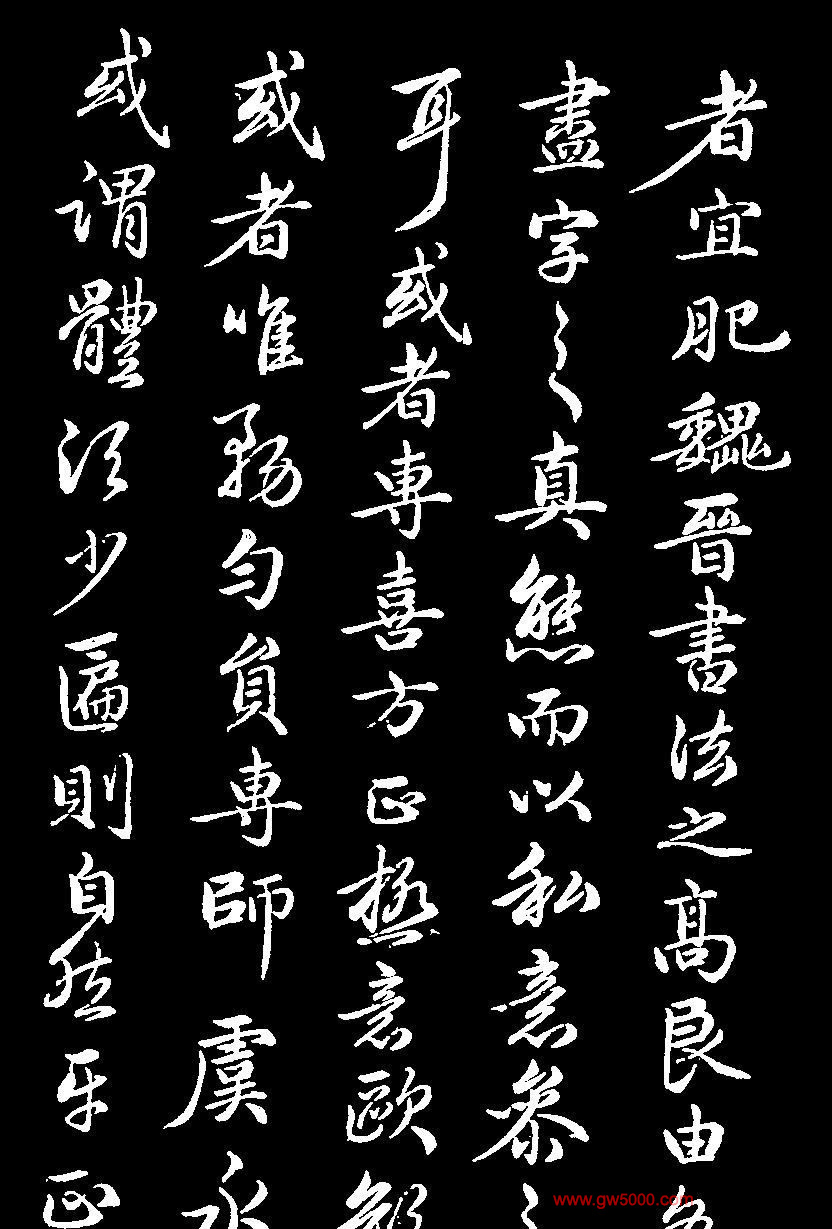 者宜肥魏晉書法之高良由各
盡字之真態而以私意參之
耳或者專喜方正極意歐顏
或者唯務勻員專師虞永
或謂體須少匾則自然平正
www.gw5000.com